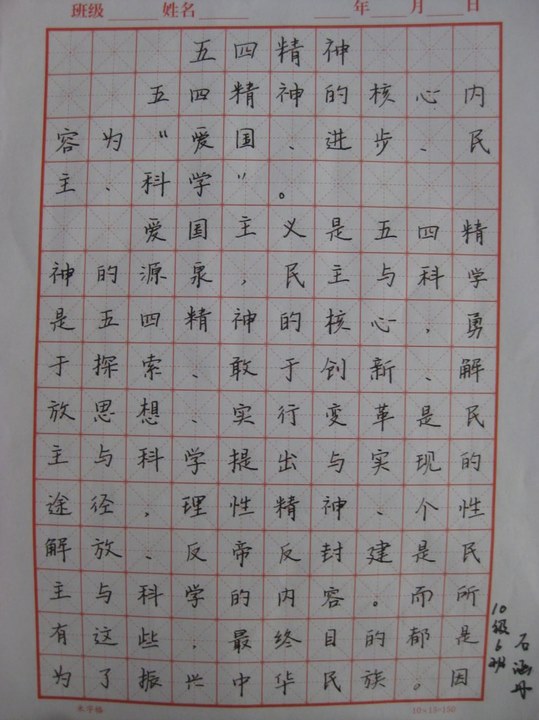 班级 姓名 年 月 日
五四精神
五四精神的核心内
容为“爱国、进步、民
主、科学”。
爱国主义是五四精
神的源泉，民主与科学
是五四精神的核心，勇
于探索、敢于创新、解
放思想、实行变革是民
主与科学提出与实现的
途径，理性精神、个性
解放、反帝反封建是民
主与科学的内容。而所
有这些，最终目的都是
为了振兴中华民族。因
10级6班
石涵丹